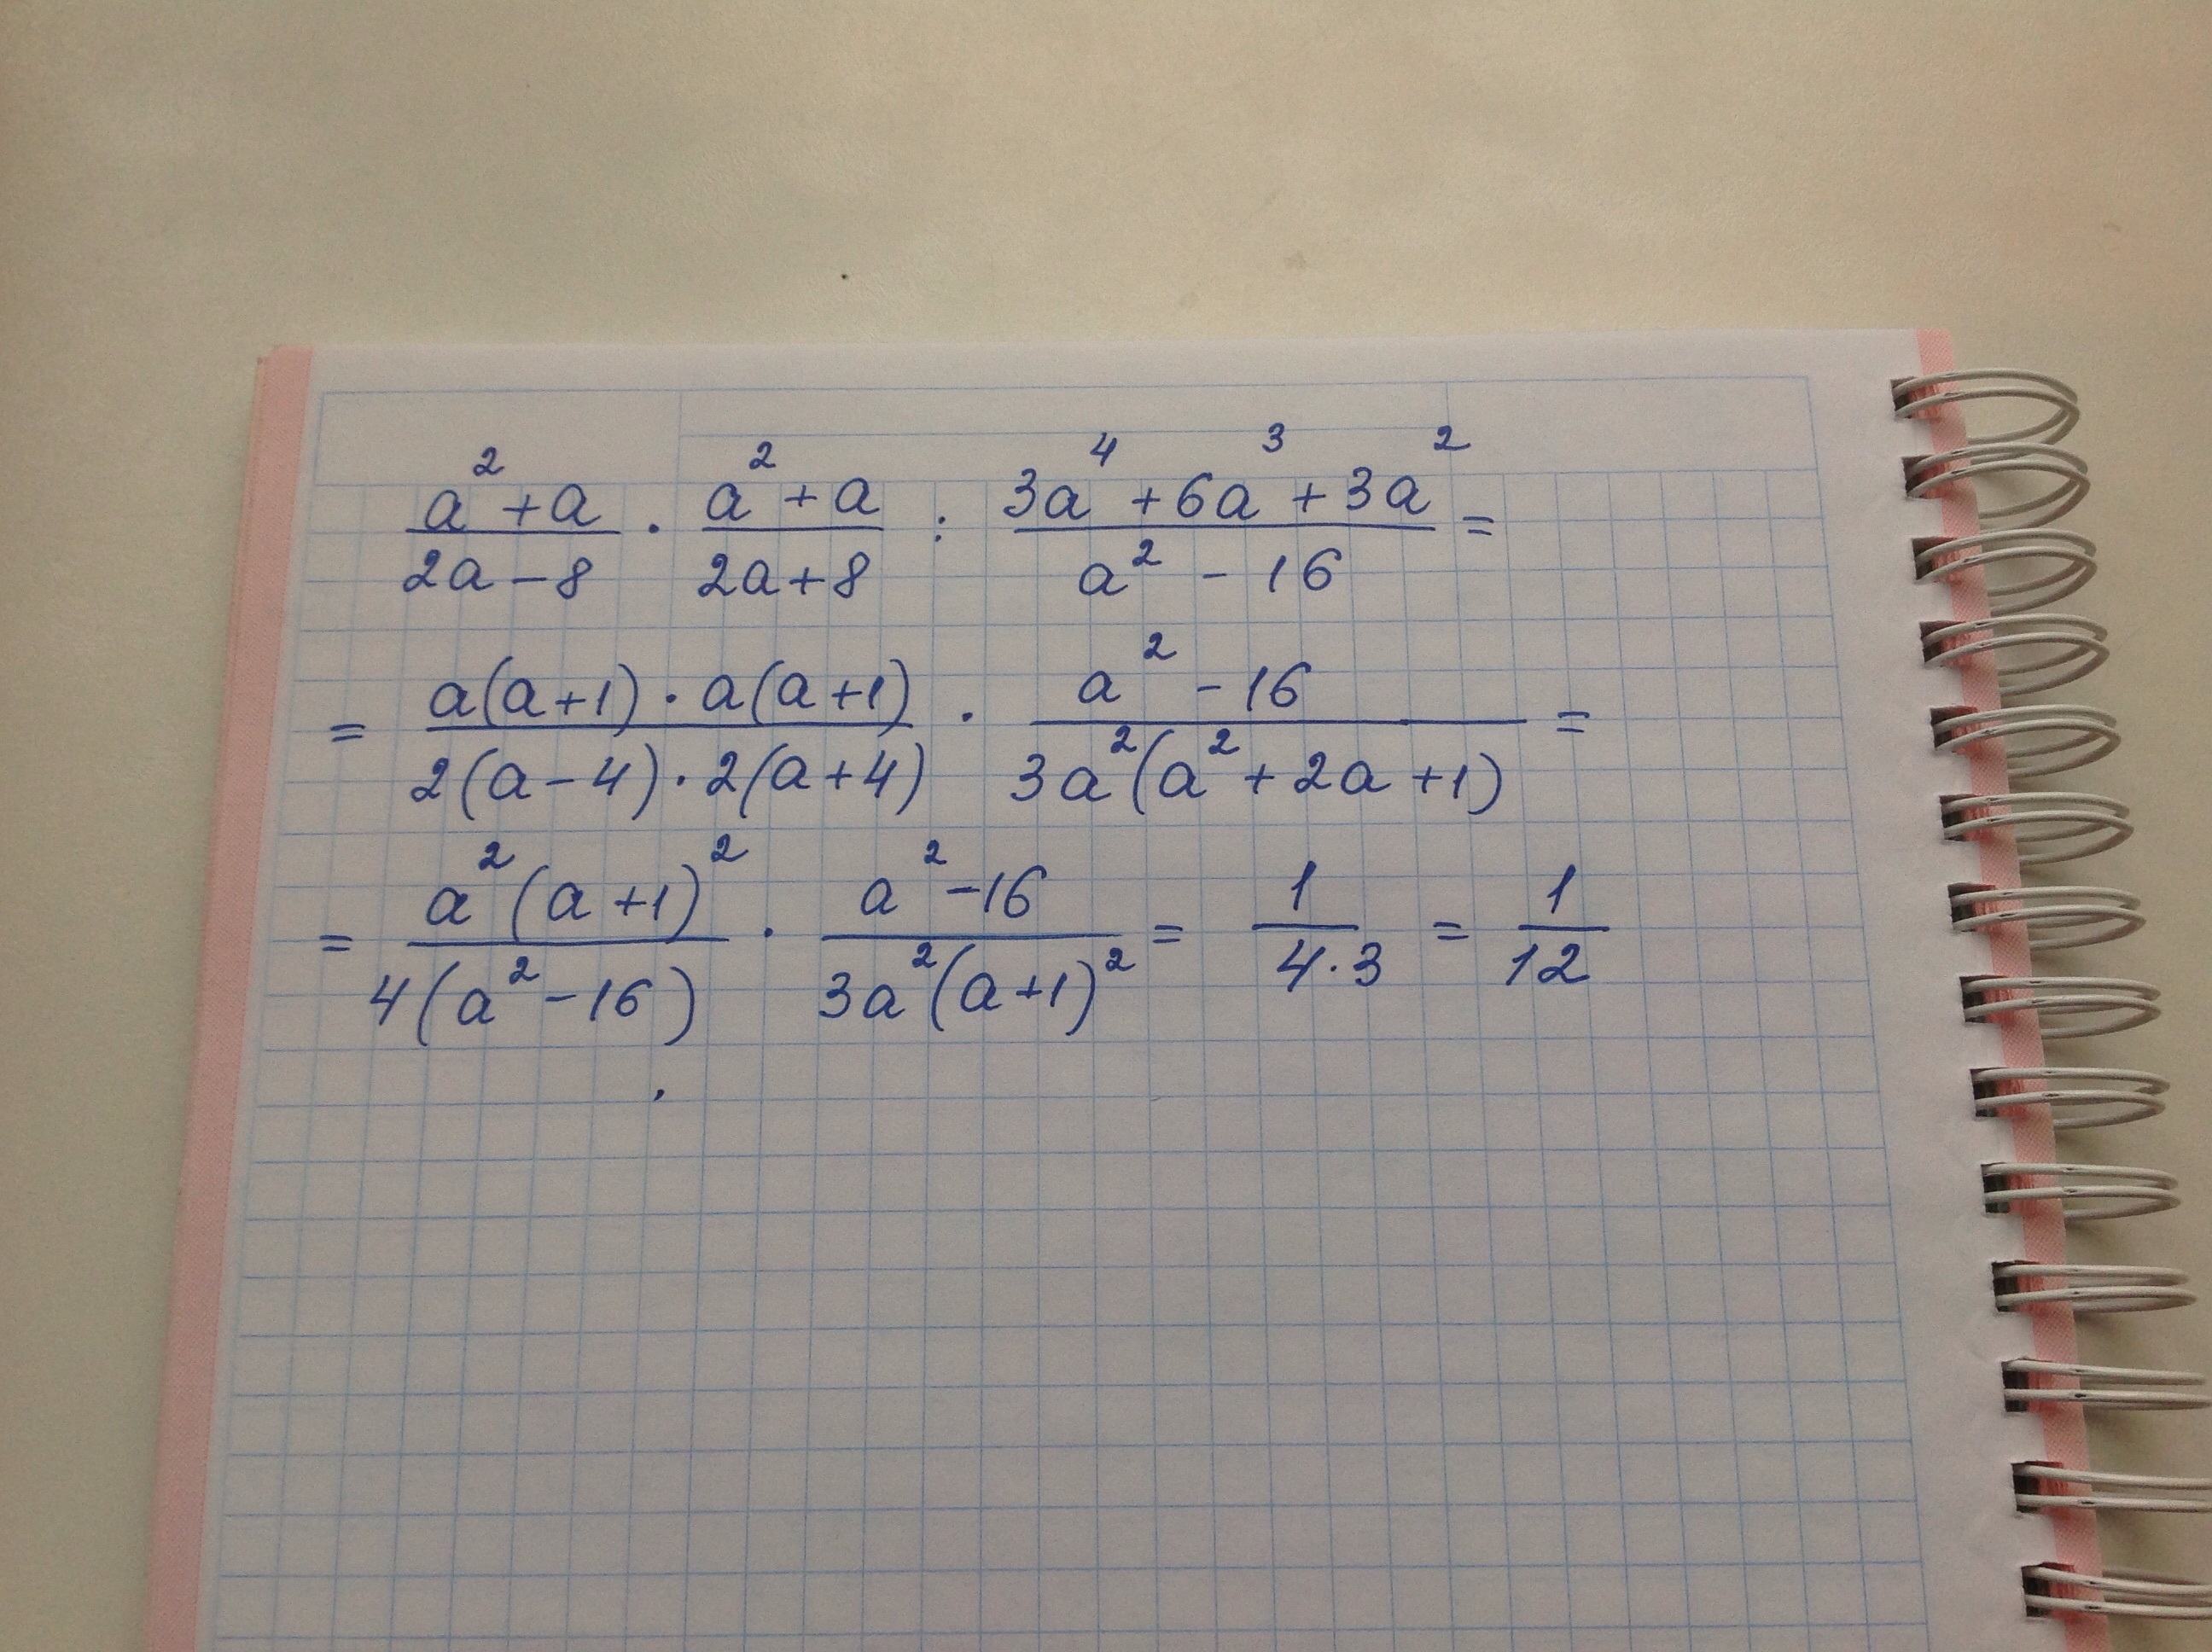 (a² + a)/(2a − 8) · (a² + a)/(2a + 8) : (3a⁴ + 6a³ + 3a²)/(a² − 16) =
= (a(a + 1) · a(a + 1))/(2(a − 4) · 2(a + 4)) · (a² − 16)/(3a²(a² + 2a + 1)) =
= (a²(a + 1)²)/(4(a² − 16)) · (a² − 16)/(3a²(a + 1)²) = 1/(4 · 3) = 1/12